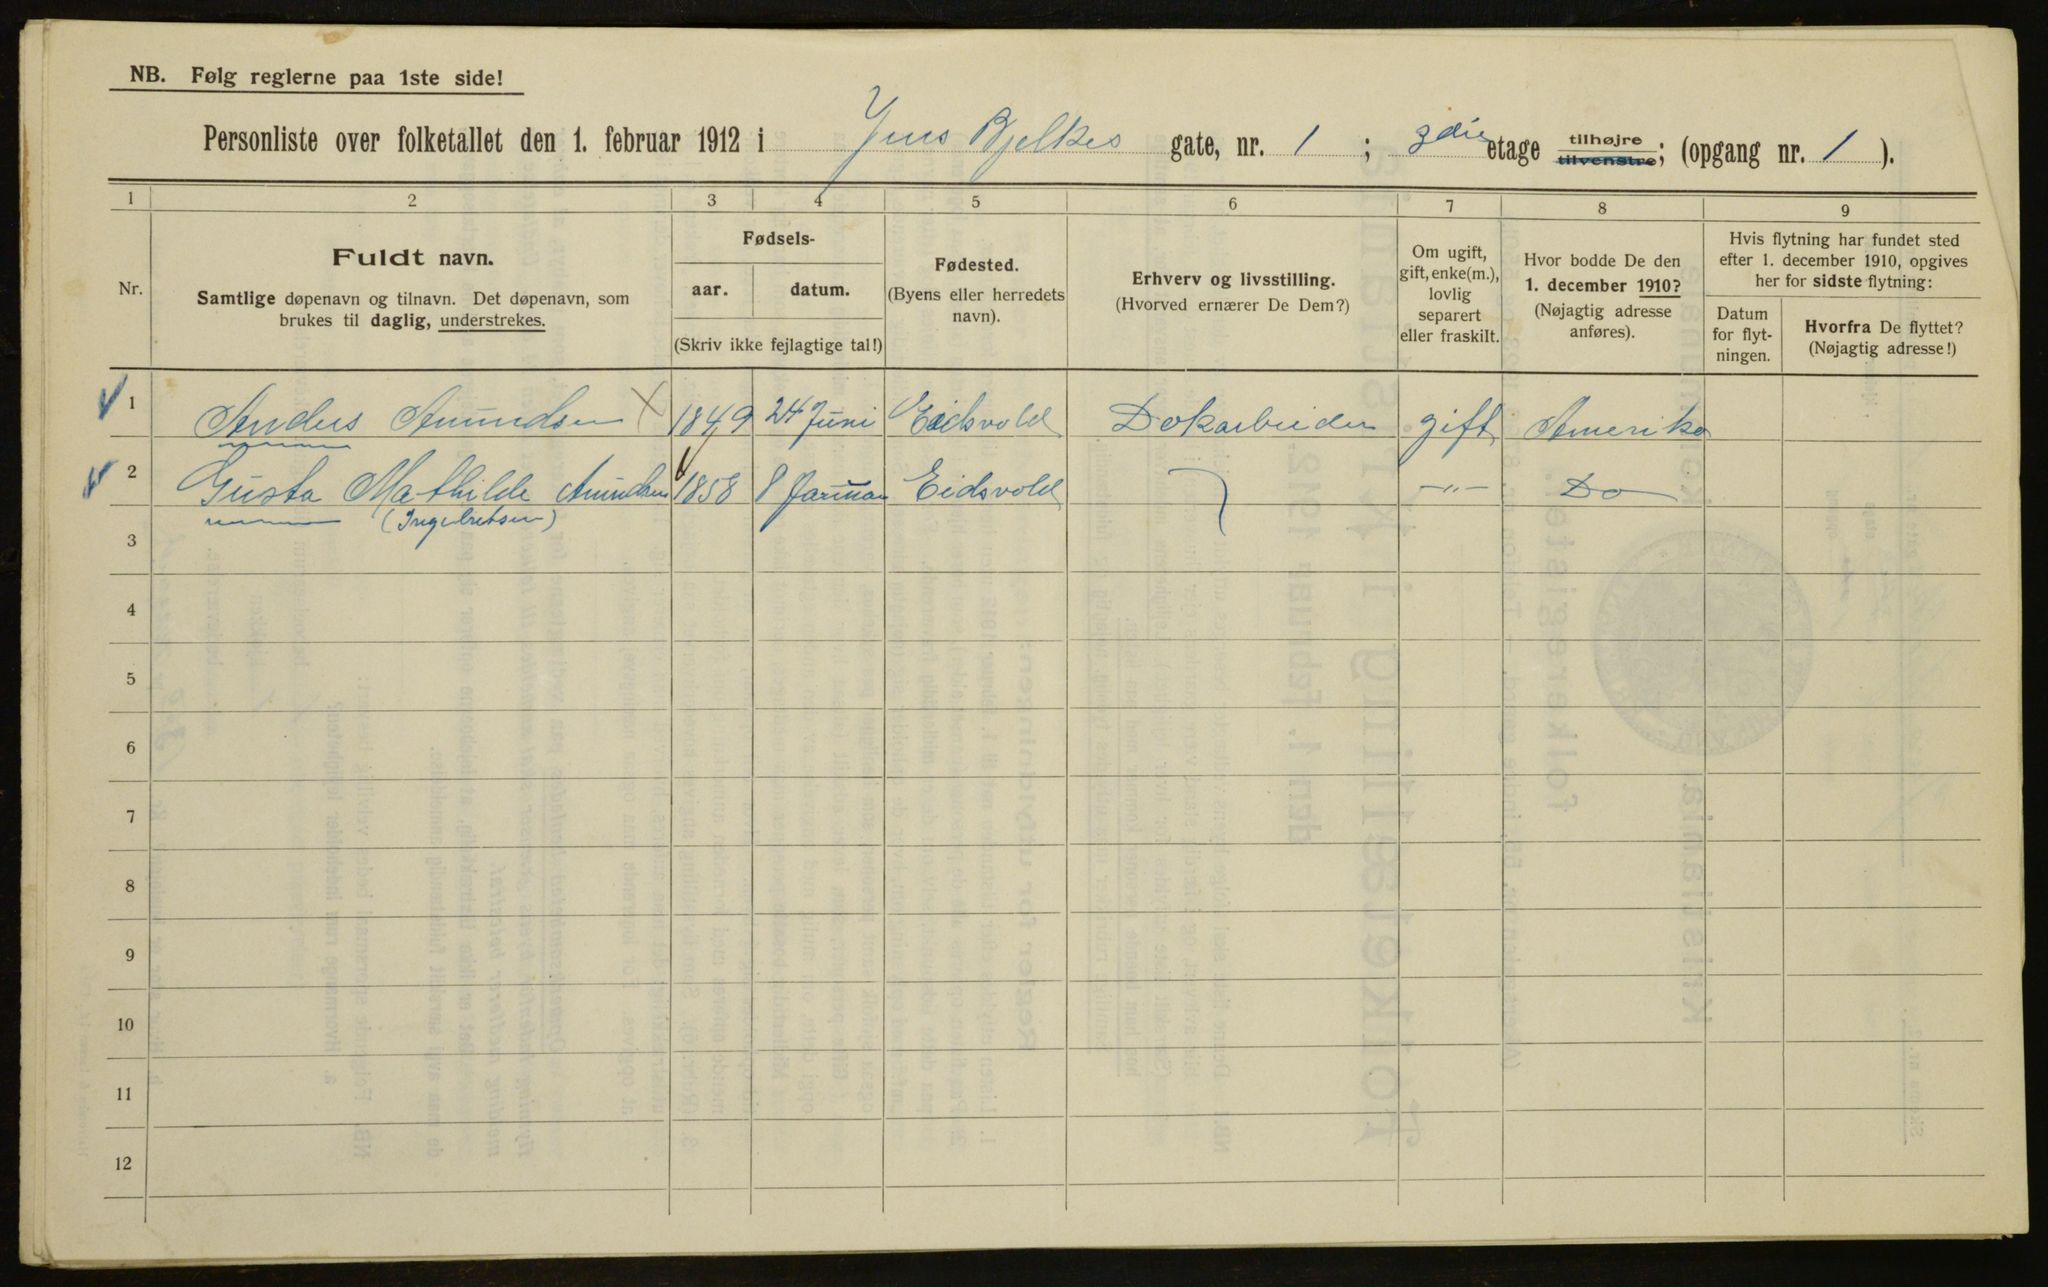 NB. Følg reglerne paa 1ste side!
Personliste over folketallet den 1. februar 1912 i Jens Bjelkes gate, nr. 1 ; 3die etage tilhøjre tilvenstre; (opgang nr. 1 ).
1 2 3 4 5 6 7 8 9
Nr.
Fuldt navn.
Samtlige døpenavn og tilnavn. Det døpenavn, som
brukes til daglig, understrekes.
Fødsels-
aar. datum.
(Skriv ikke fejlagtige tal!)
Fødested.
(Byens eller herredets
navn).
Erhverv og livsstilling.
(Hvorved ernærer De Dem?)
Om ugift,
gift, enke(m.),
lovlig
separert
eller fraskilt.
Hvor bodde De den
1. december 1910?
(Nøjagtig adresse
anføres).
Hvis flytning har fundet sted
efter 1. december 1910, opgives
her for sidste flytning:
Datum
for flyt-
ningen.
Hvorfra De flyttet?
(Nøjagtig adresse!)
1 Anders Amundsen 1849 24 Juni Eidsvold Dokarbeider gift Amerika
2 Gusta Mathilde Amundsen 1858 8 Januar Eidsvold —"— Do
(Ingebretsen)
3
4
5
6
7
8
9
10
11
12